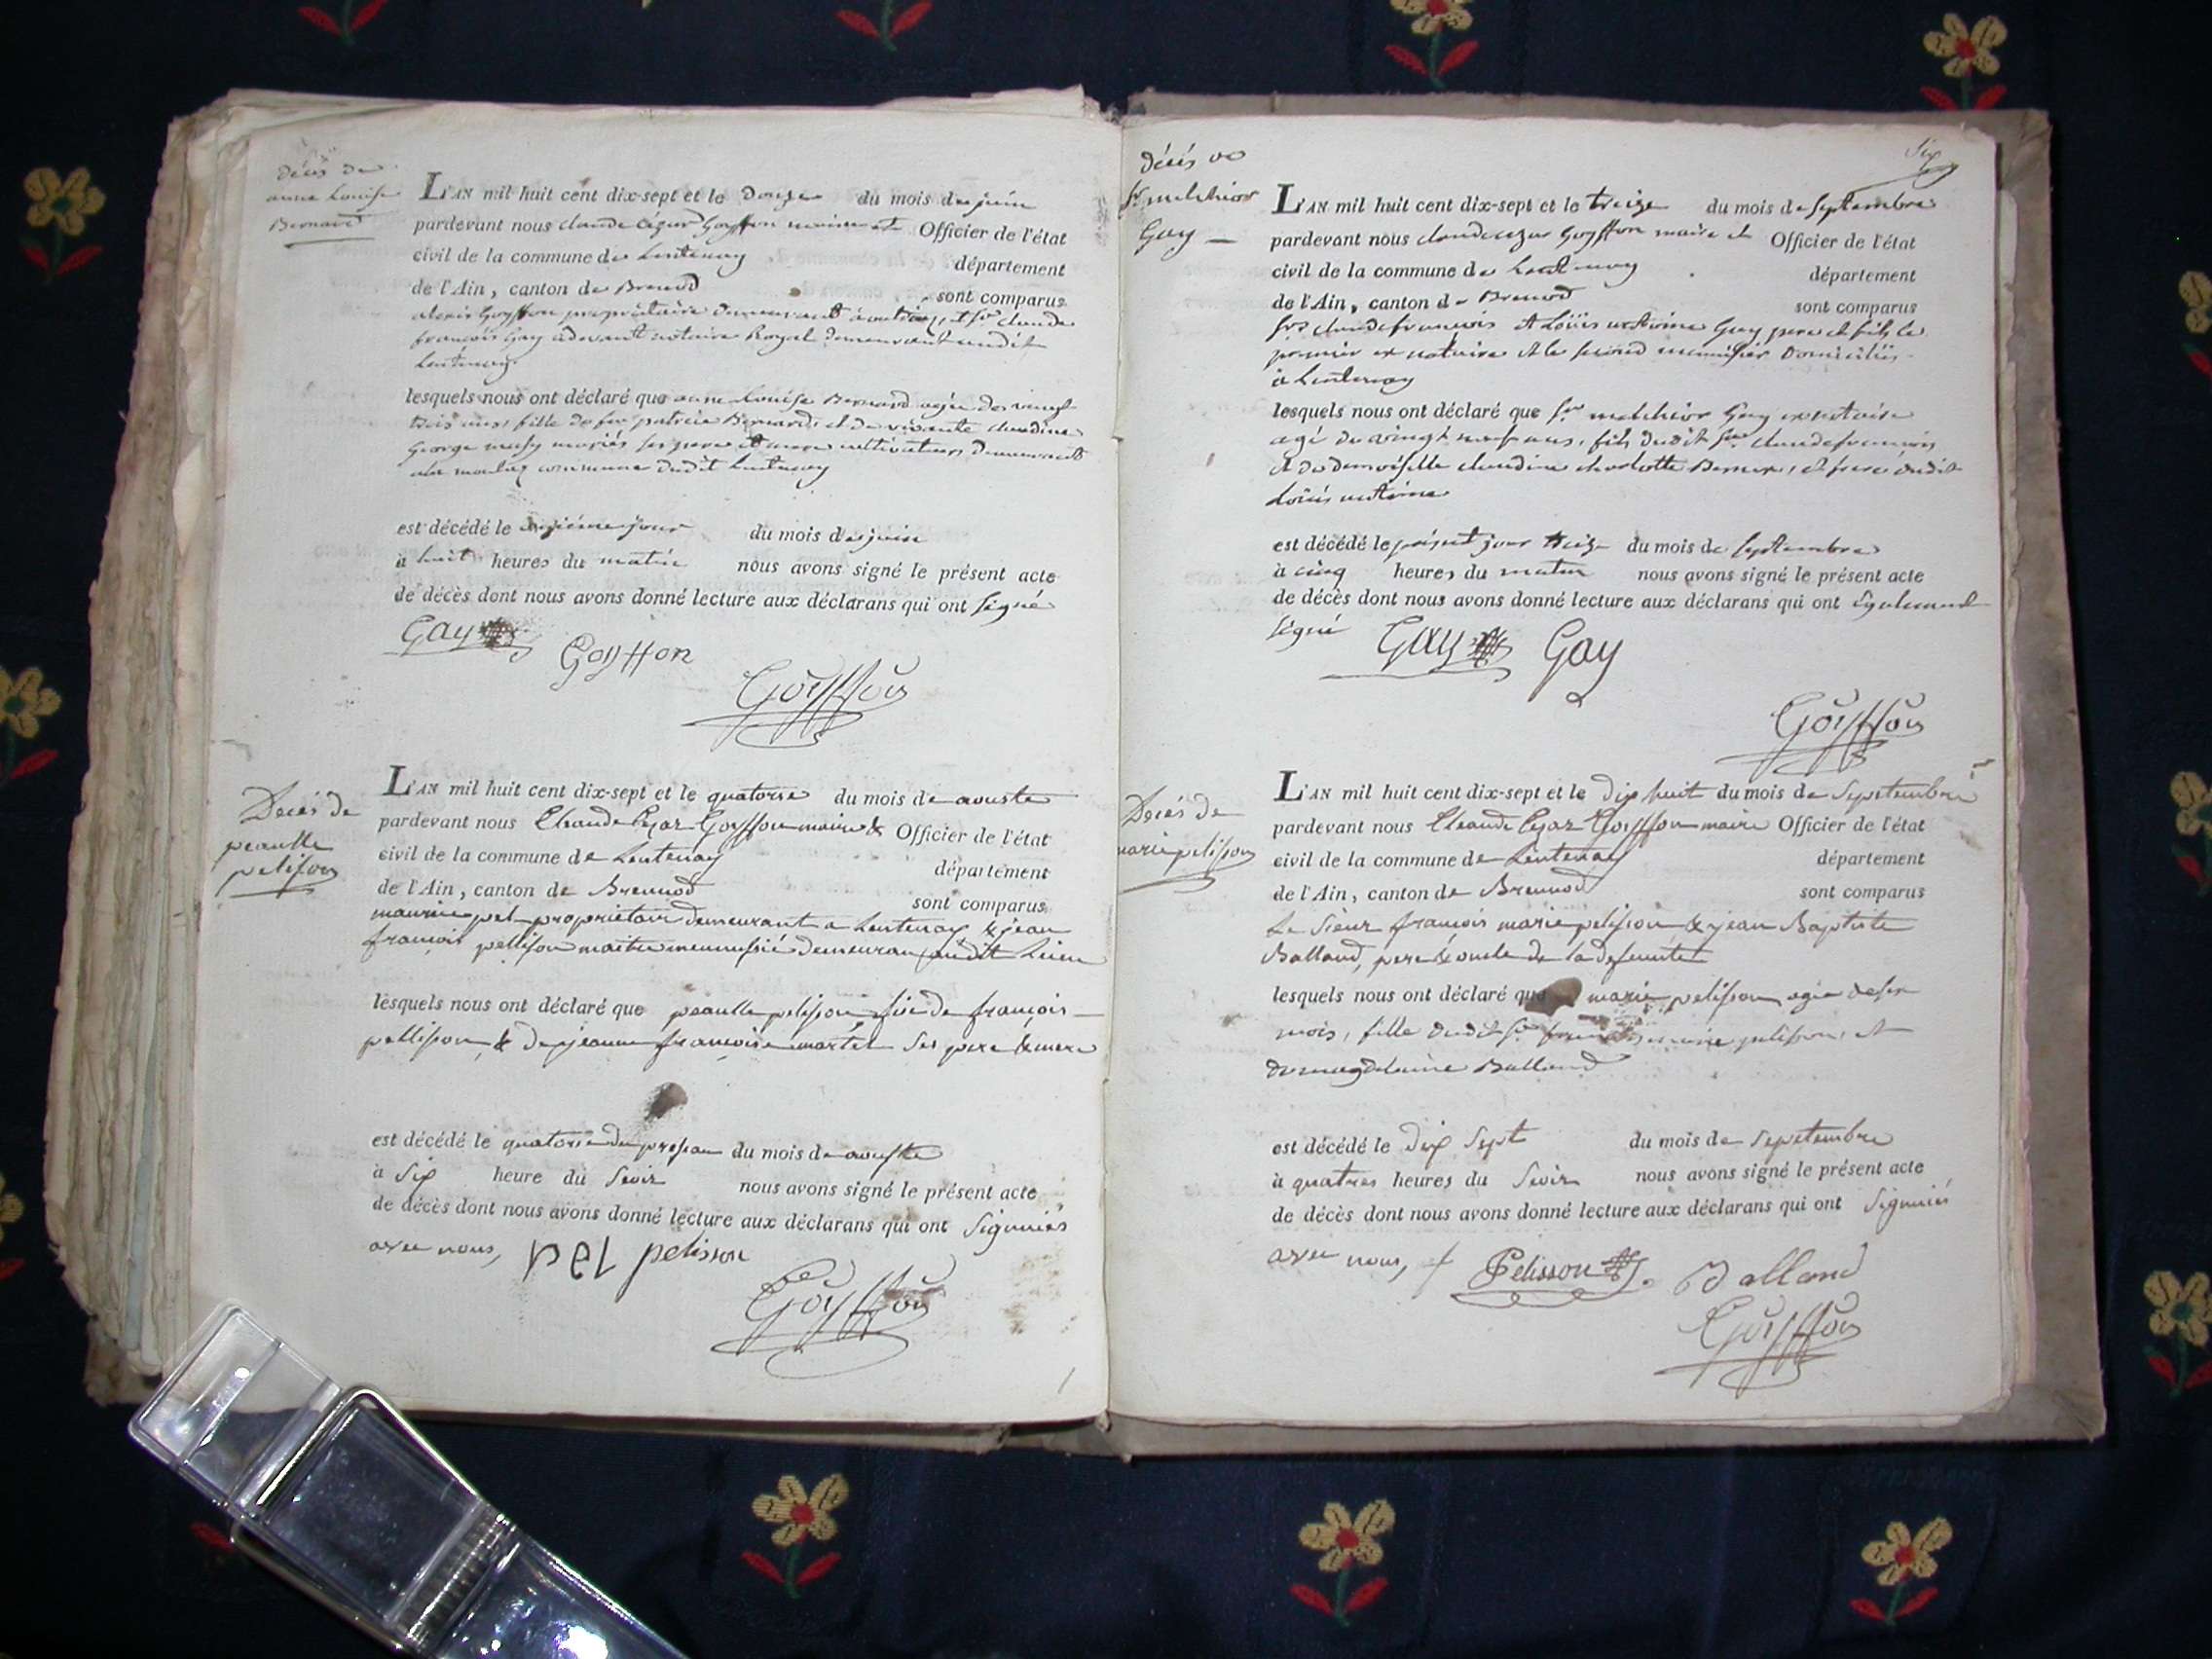 décès de
anne Louise
Bernard
L'AN mil huit cent dix-sept et le douze du mois de juin
pardevant nous claude Cézar Goyffon maire et Officier de l'état
civil de la commune de Lentenay département
de l'Ain, canton de Brenod sont comparus
alexis Goyffon propriétaire demeurant à et Sr claude
françois Gay notaire Royal demeurant audit
Lentenay
lesquels nous ont déclaré que anne Louise Bernard agée de vingt
trois ans, fille de feu patrice Bernard, et de vivante claudine
George mariés ses pere et mere cultivateurs demeurants
commune dudit Lentenay
est décédé le onzième jour du mois de juin
à huit heures du matin nous avons signé le présent acte
de décès dont nous avons donné lecture aux déclarans qui ont signé
Gay Goyffon
Goyffon
Decés de
peaulle
pelisson
L'AN mil huit cent dix-sept et le quatorse du mois de aouste
pardevant nous Claude Cezar Goyffon maire & Officier de l'état
civil de la commune de Lentenay département
de l'Ain, canton de Brennod sont comparus
maurice pel proprietair demeurant a Lentenay & jean
francois pellison maitre menussié demeuran audit Lieu
lesquels nous ont déclaré que peaulle pelisson fie de françois
pellisson & de jeanne francoise martel Ses pere & mere
est décédé le quatorse du presan du mois de aouste
à Six heure du Soir nous avons signé le présent acte
de décès dont nous avons donné lecture aux déclarans qui ont Signniés
avec nous, pel pelisson
Goyffon
Six
décés de
Sr melchior
Gay
L'AN mil huit cent dix-sept et le treize du mois de septembre
pardevant nous claude cezar Goyffon maire et Officier de l'état
civil de la commune de Lentenay département
de l'Ain, canton de Brenod sont comparus
Srs claude francois et Loüis antoine Gay pere et fils le
premier ex notaire et le second menuisier domiciliés
à Lentenay
lesquels nous ont déclaré que Sr melchior Gay ex notaire
agé de vingt neuf ans, fils dudit Sr claude francois
et de demoiselle claudine charlotte et frere dudit
Loüis antoine
est décédé le présent jour treize du mois de septembre
à cinq heures du matin nous avons signé le présent acte
de décès dont nous avons donné lecture aux déclarans qui ont également
signé Gay Gay
Goyffon
Decés de
marie pelisson
L'AN mil huit cent dix-sept et le dix huit du mois de Sepetembre
pardevant nous Claude Cezar Goyffon maire Officier de l'état
civil de la commune de Lentenay département
de l'Ain, canton de Brennod sont comparus
Le Sieur francois marie pelission & jean Baptiste
Balland, pere & oncle de la defunte
lesquels nous ont déclaré que marie pelisson agée de six
mois, fille dudit Sr francois marie pelisson, et
de magdelaine Balland
est décédé le dix Sept du mois de Sepetembre
à quatres heures du Soir nous avons signé le présent acte
de décès dont nous avons donné lecture aux déclarans qui ont Signniés
avec nous, Pelisson Balland
Goyffon